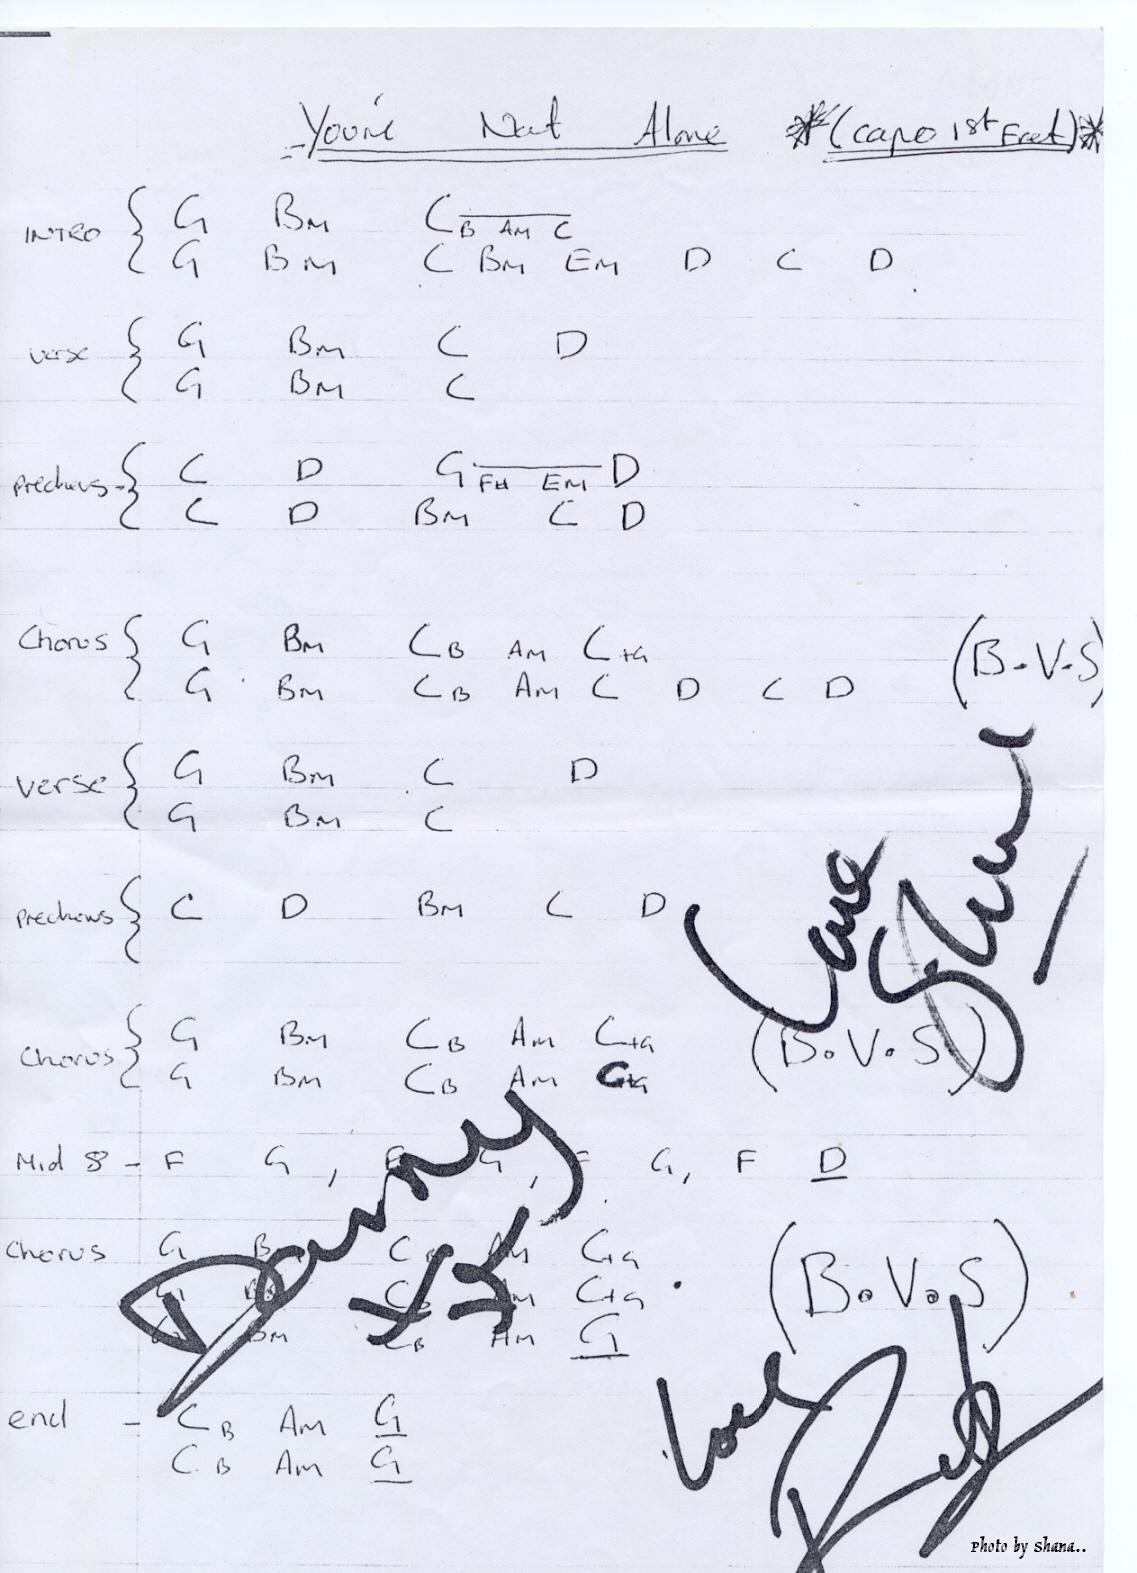 You're Not Alone *(capo 1st Fret)*
INTRO { G Bm C B Am C
G Bm C Bm Em D C D
verse { G Bm C D
G Bm C
prechorus - { C D G F# Em D
C D Bm C D
Chorus { G Bm C B Am C+G (B.V.S)
G Bm C B Am C D C D
Verse { G Bm C D
G Bm C
prechorus { C D Bm C D
Chorus { G Bm C B Am C+G (B.V.S)
G Bm C B Am C+G
Mid 8 - F G , F G , F G, F D
Chorus G Bm C B Am C+G (B.V.S)
G Bm C B Am C+G
G Bm C B Am G
end - C B Am G
C B Am G
Love
Danny
xx
Love
Photo by Shana..